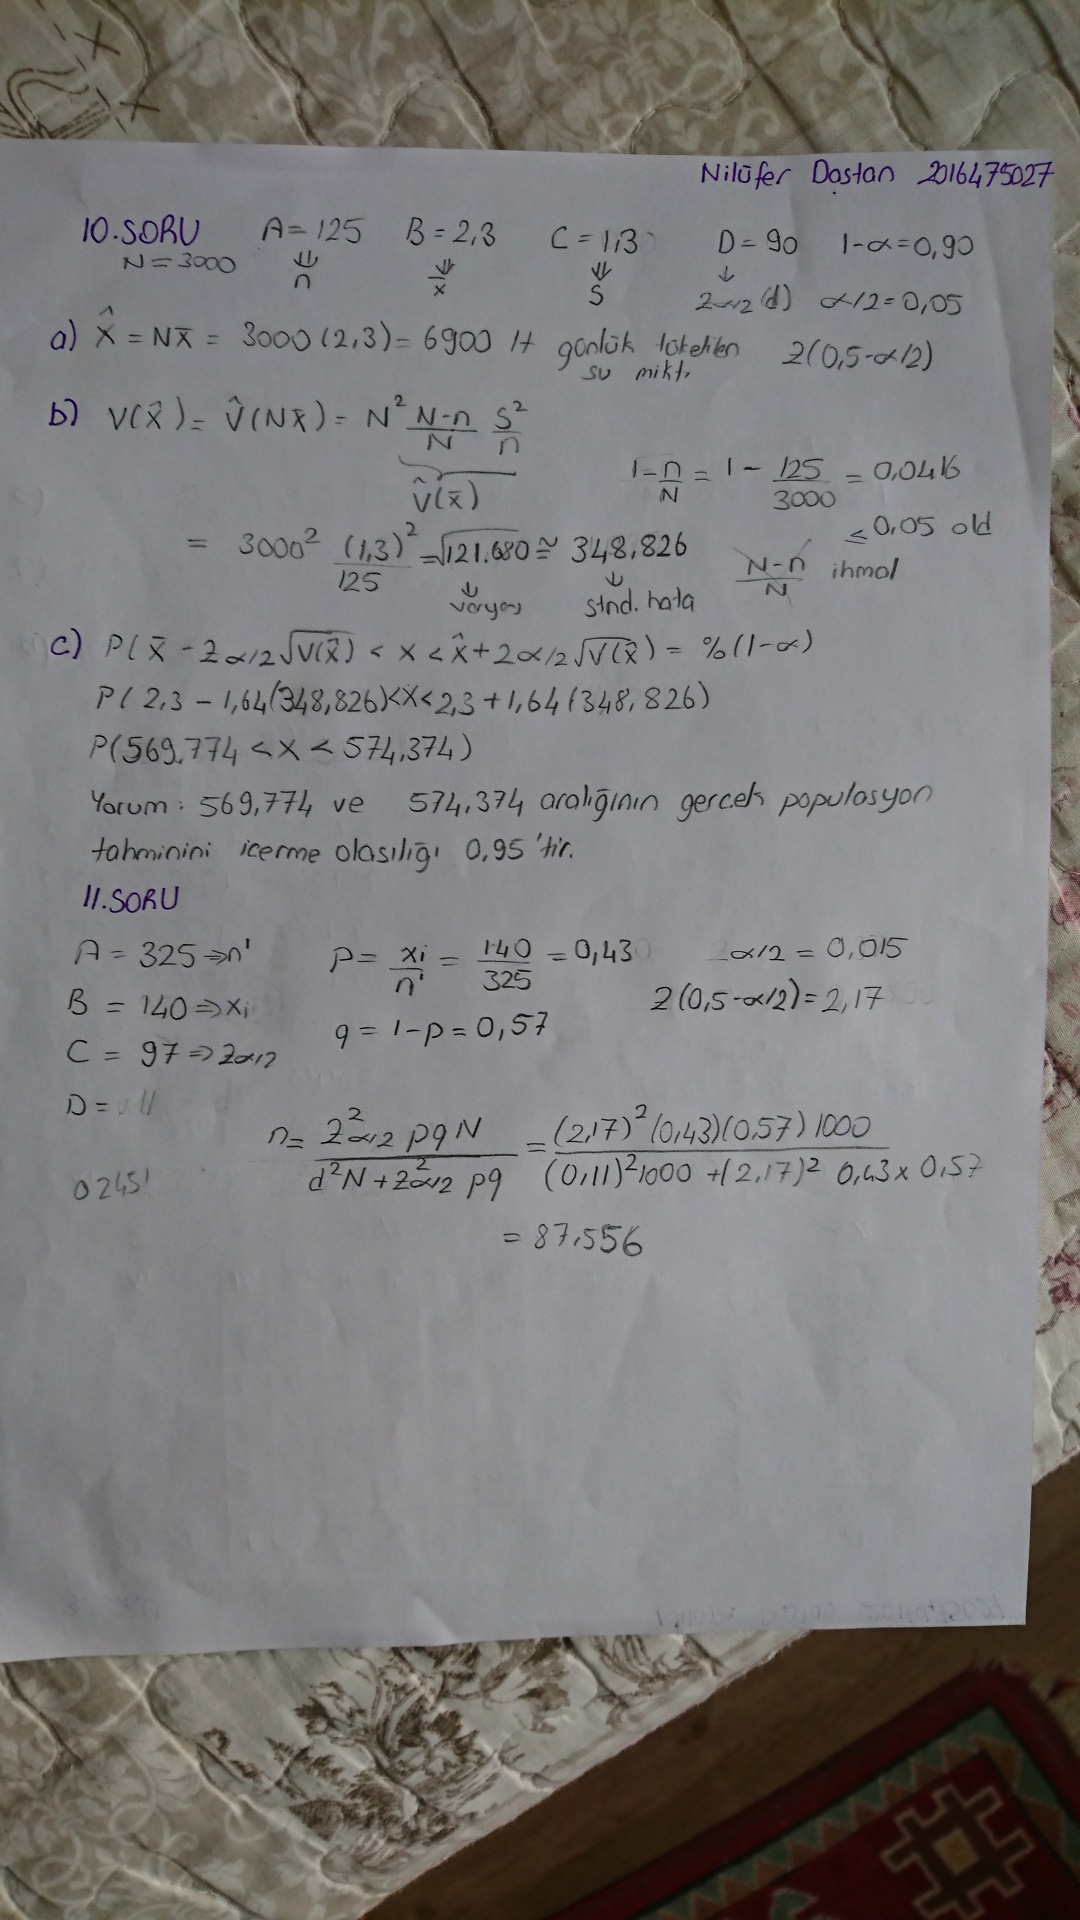 Nilüfer Dastan 2016475027
10.SORU A=125 B=2,3 C=1,3 D=90 1-α=0,90
N=3000 ⇓ n ⇓ x̄ ⇓ S ↓ Zα/2 (d) α/2=0,05
a) X̂ = Nx̄ = 3000(2,3)= 6900 lt günlük tüketilen su mikt. Z(0,5-α/2)
b) V(x̂)= V̂(Nx̄)= N² N-n/N S²/n
V̂(x̄) 1-n/N = 1 - 125/3000 = 0,0416
≤0,05 old
= 3000² (1,3)²/125 =√121.680 ≅ 348,826 N-n/N ihmal
↓ varyans ↓ stnd. hata
c) P(x̄ - Zα/2 √V(x̂) < x < x̂ + Zα/2 √V(x̂) = %(1-α)
P( 2,3 - 1,64(348,826)<X<2,3+1,64(348,826)
P(569,774 < X < 574,374)
Yorum: 569,774 ve 574,374 aralığının gercek populasyon
tahminini icerme olasılığı 0,95'tir.
11.SORU
A = 325 ⇒n' p= xi/n' = 140/325 = 0,43 α/2 = 0,015
B = 140 ⇒ xi q = 1-p = 0,57 Z(0,5-α/2)=2,17
C = 97 ⇒ Zα/2
D= 11
n= Z²α/2 pqN / d²N+Z²α/2 pq = (2,17)² (0,43)(0,57) 1000 / (0,11)² 1000 +(2,17)² 0,43x0,57
0245'
= 87,556